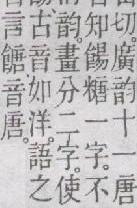 當切。廣韵十一唐
知餳糖一字。不
韵。畫分二字。使
餳古音如洋。語之
言餹音唐。